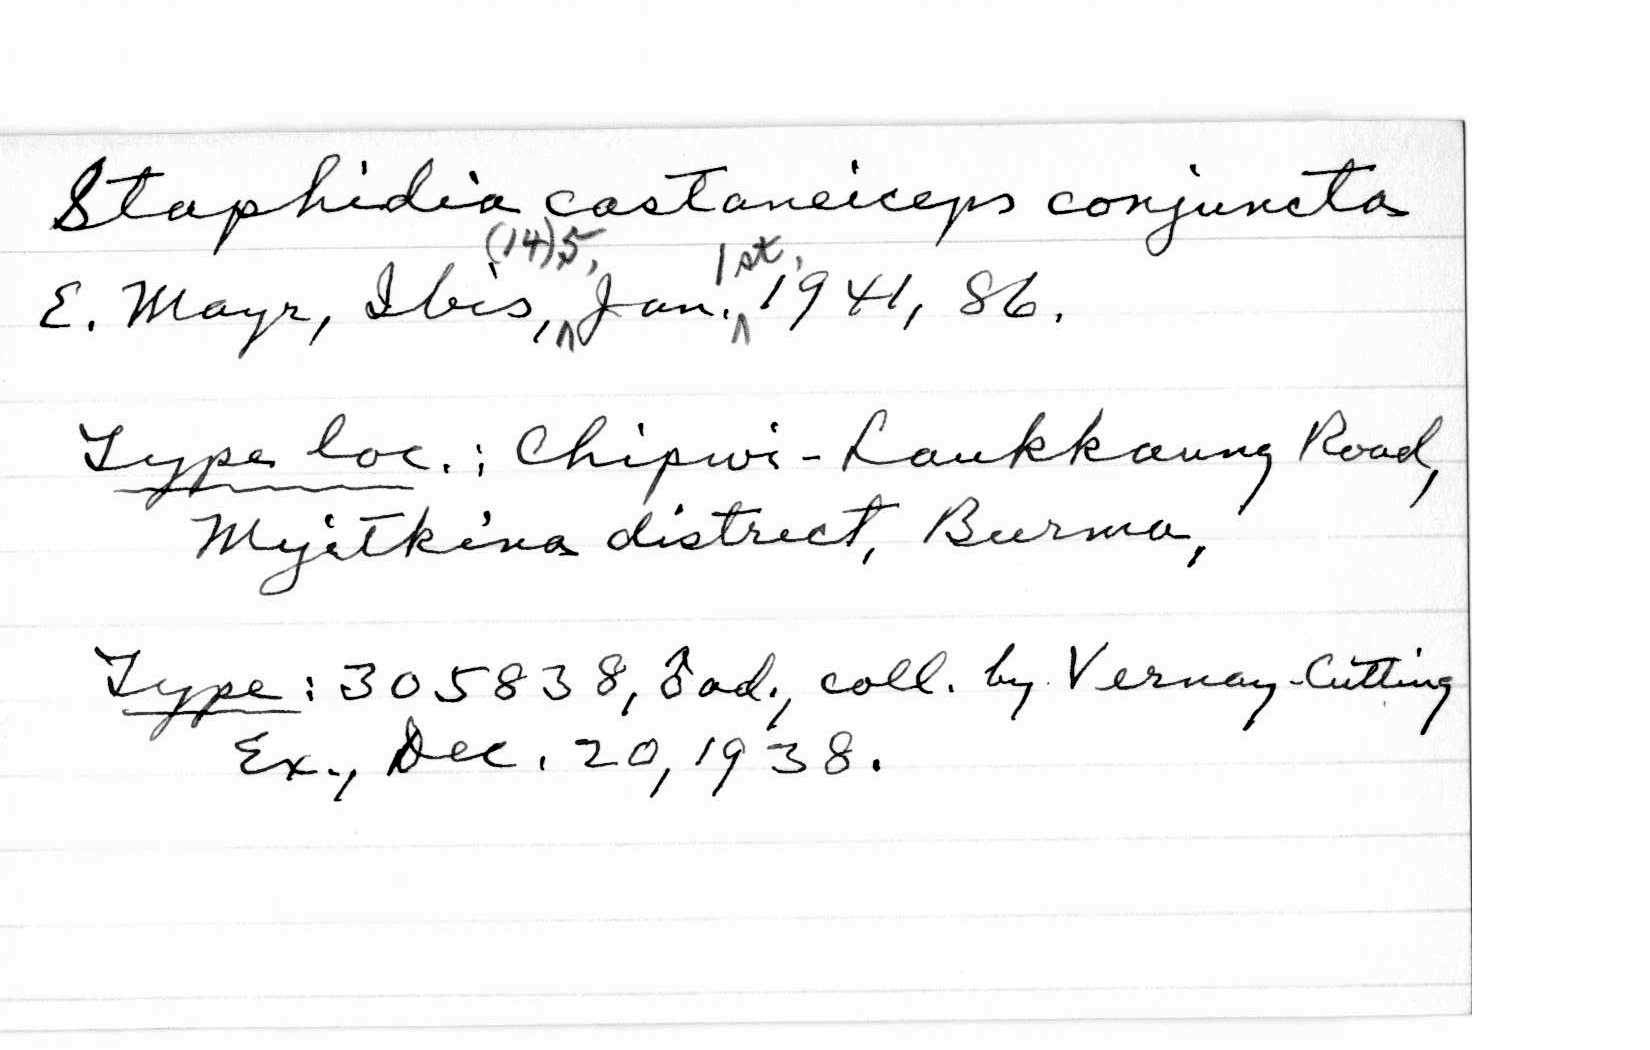 Staphidia castaneiceps conjuncta
E. Mayr, Ibis, (14)5, Jan. 1st, 1941, 86.
Type loc.: Chipwi-Laukkaung Road,
Myitkina district, Burma,
Type: 305838, ♂ ad., coll. by Vernay-Cutting
Ex., Dec. 20, 1938.